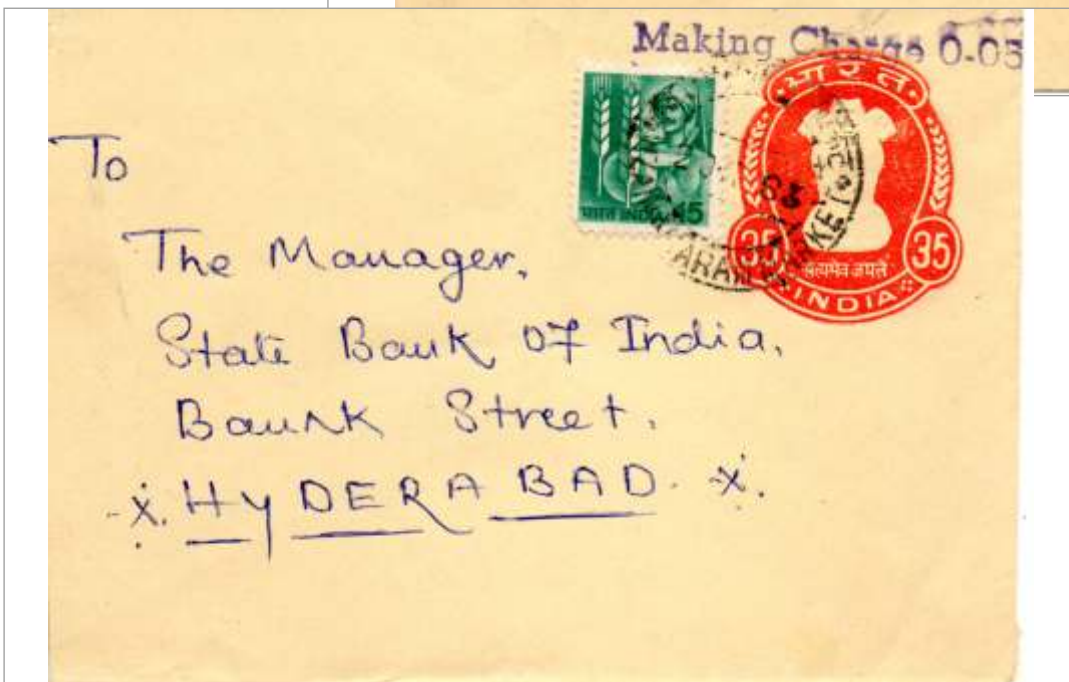 Making Charge 0-05
भारत
To
भारत INDIA 15
35 35
सत्यमेव जयते
INDIA
The Manager,
State Bank Of India,
Bank Street.
HYDERABAD.